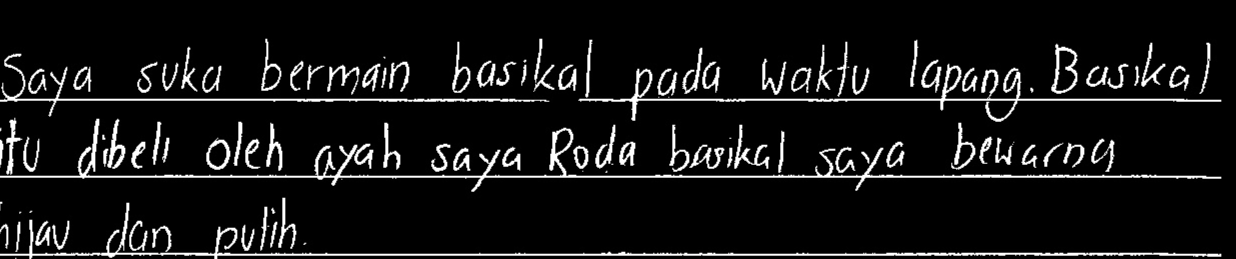 Saya suka bermain basikal pada waktu lapang. Basikal
itu dibeli oleh ayah saya Roda basikal saya bewarna
hijau dan putih.